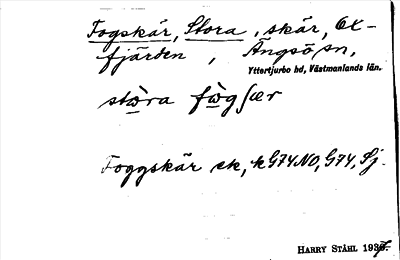 Fogskär, Stora, skär, Ox-
fjärden, Ängsö sn,
Yttertjurbo hd, Västmanlands län.
stὼra fὼgʃær
Foggskär ek, k G74NO, G74, Sj.
HARRY STÅHL 1937.